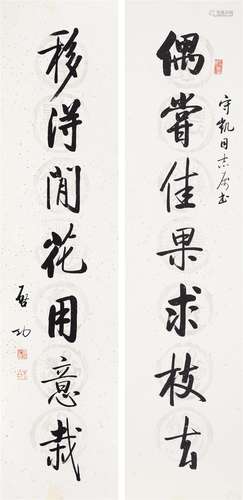 偶嘗佳果求枝去
守凱同志屬書
移得閒花用意栽
啟功